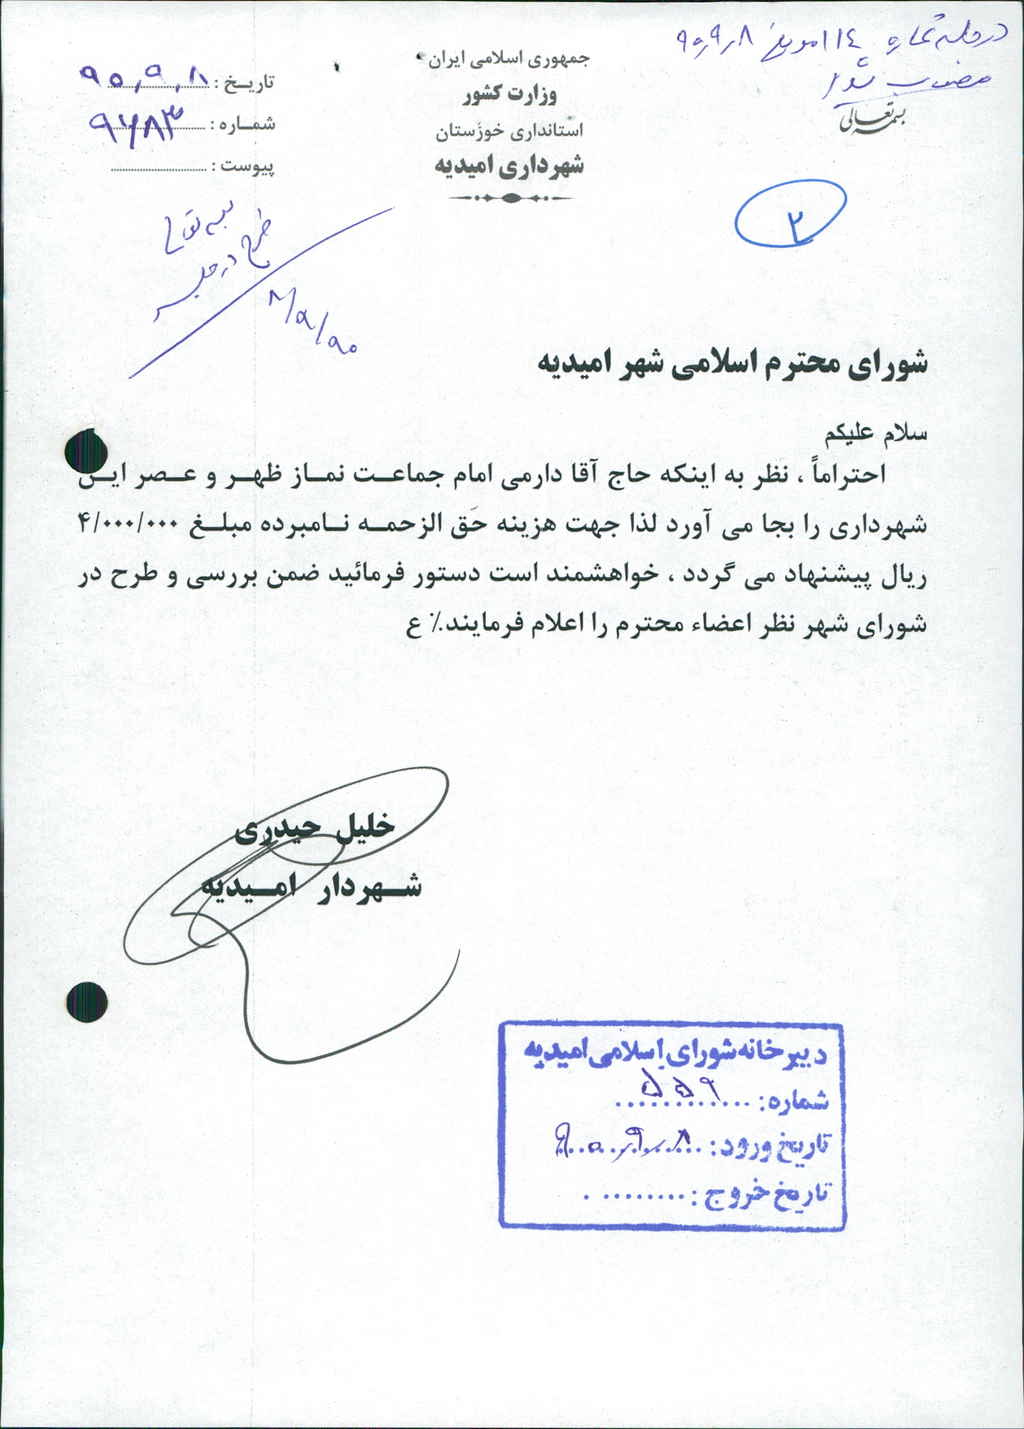 در جلسه شماره ۱۱۴ مورخ ۹۰٫۹٫۸
مصوب شد
بسمه تعالی
جمهوری اسلامی ایران
وزارت کشور
استانداری خوزستان
شهرداری امیدیه
تاریخ : ۹۰٫۹٫۸
شماره : ۹۶۸۳
پیوست :
بسمه تعالی
طرح در جلسه
۹۰/۹/۸
۲
شورای محترم اسلامی شهر امیدیه
سلام علیکم
احتراماً ، نظر به اینکه حاج آقا دارمی امام جماعت نماز ظهر و عصر این
شهرداری را بجا می آورد لذا جهت هزینه حق الزحمه نامبرده مبلغ ۴/۰۰۰/۰۰۰
ریال پیشنهاد می گردد ، خواهشمند است دستور فرمائید ضمن بررسی و طرح در
شورای شهر نظر اعضاء محترم را اعلام فرمایند.٪ ع
خلیل حیدری
شهردار امیدیه
دبیرخانه شورای اسلامی امیدیه
شماره: ۵۵۹
تاریخ ورود: ۹۰٫۹٫۸
تاریخ خروج: